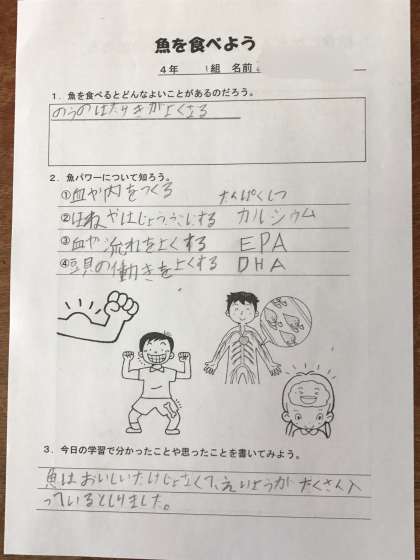 魚を食べよう
4年 1組 名前
1．魚を食べるとどんなよいことがあるのだろう。
のうのはたらきがよくなる
2．魚パワーについて知ろう。
①血や肉をつくる たんぱくしつ
②ほねやはじょうぶにする カルシウム
③血や流れをよくする EPA
④頭の働きをよくする DHA
3．今日の学習で分かったことや思ったことを書いてみよう。
魚はおいしいだけじゃなくて、えいようがたくさん入
っているとしりました。